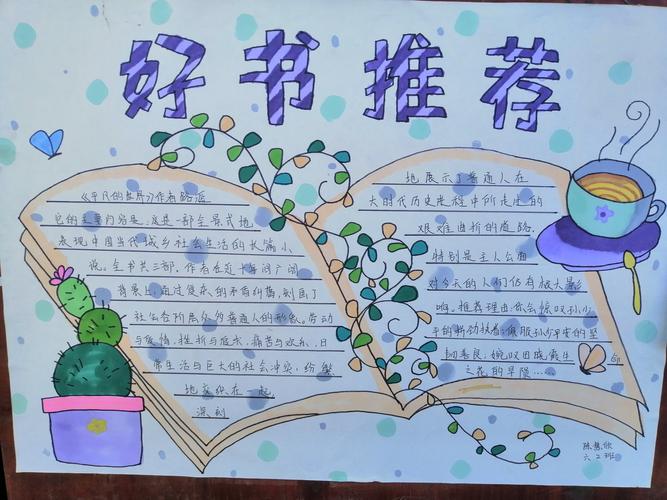 好书推荐
《平凡的世界》作者路遥
它的主要内容是:这是一部全景式地
表现中国当代城乡社会生活的长篇小
说。全书共三部。作者在近十年间广阔
背景上,通过复杂的矛盾纠葛,刻画了
社会各阶层众多普通人的形象。劳动
与爱情,挫折与追求,痛苦与欢乐,日
常生活与巨大的社会冲突,纷繁
地交织在一起,
深刻
地展示了普通人在
大时代历史进程中所走过的
艰难曲折的道路.
特别是主人公面
对今天的人们仍有极大影
响。推荐理由:你会惊叹孙少
平的 执著,佩服孙少安的坚
韧善良,婉叹田晓霞生命
之花的早陨……
陈慧欣
六2班